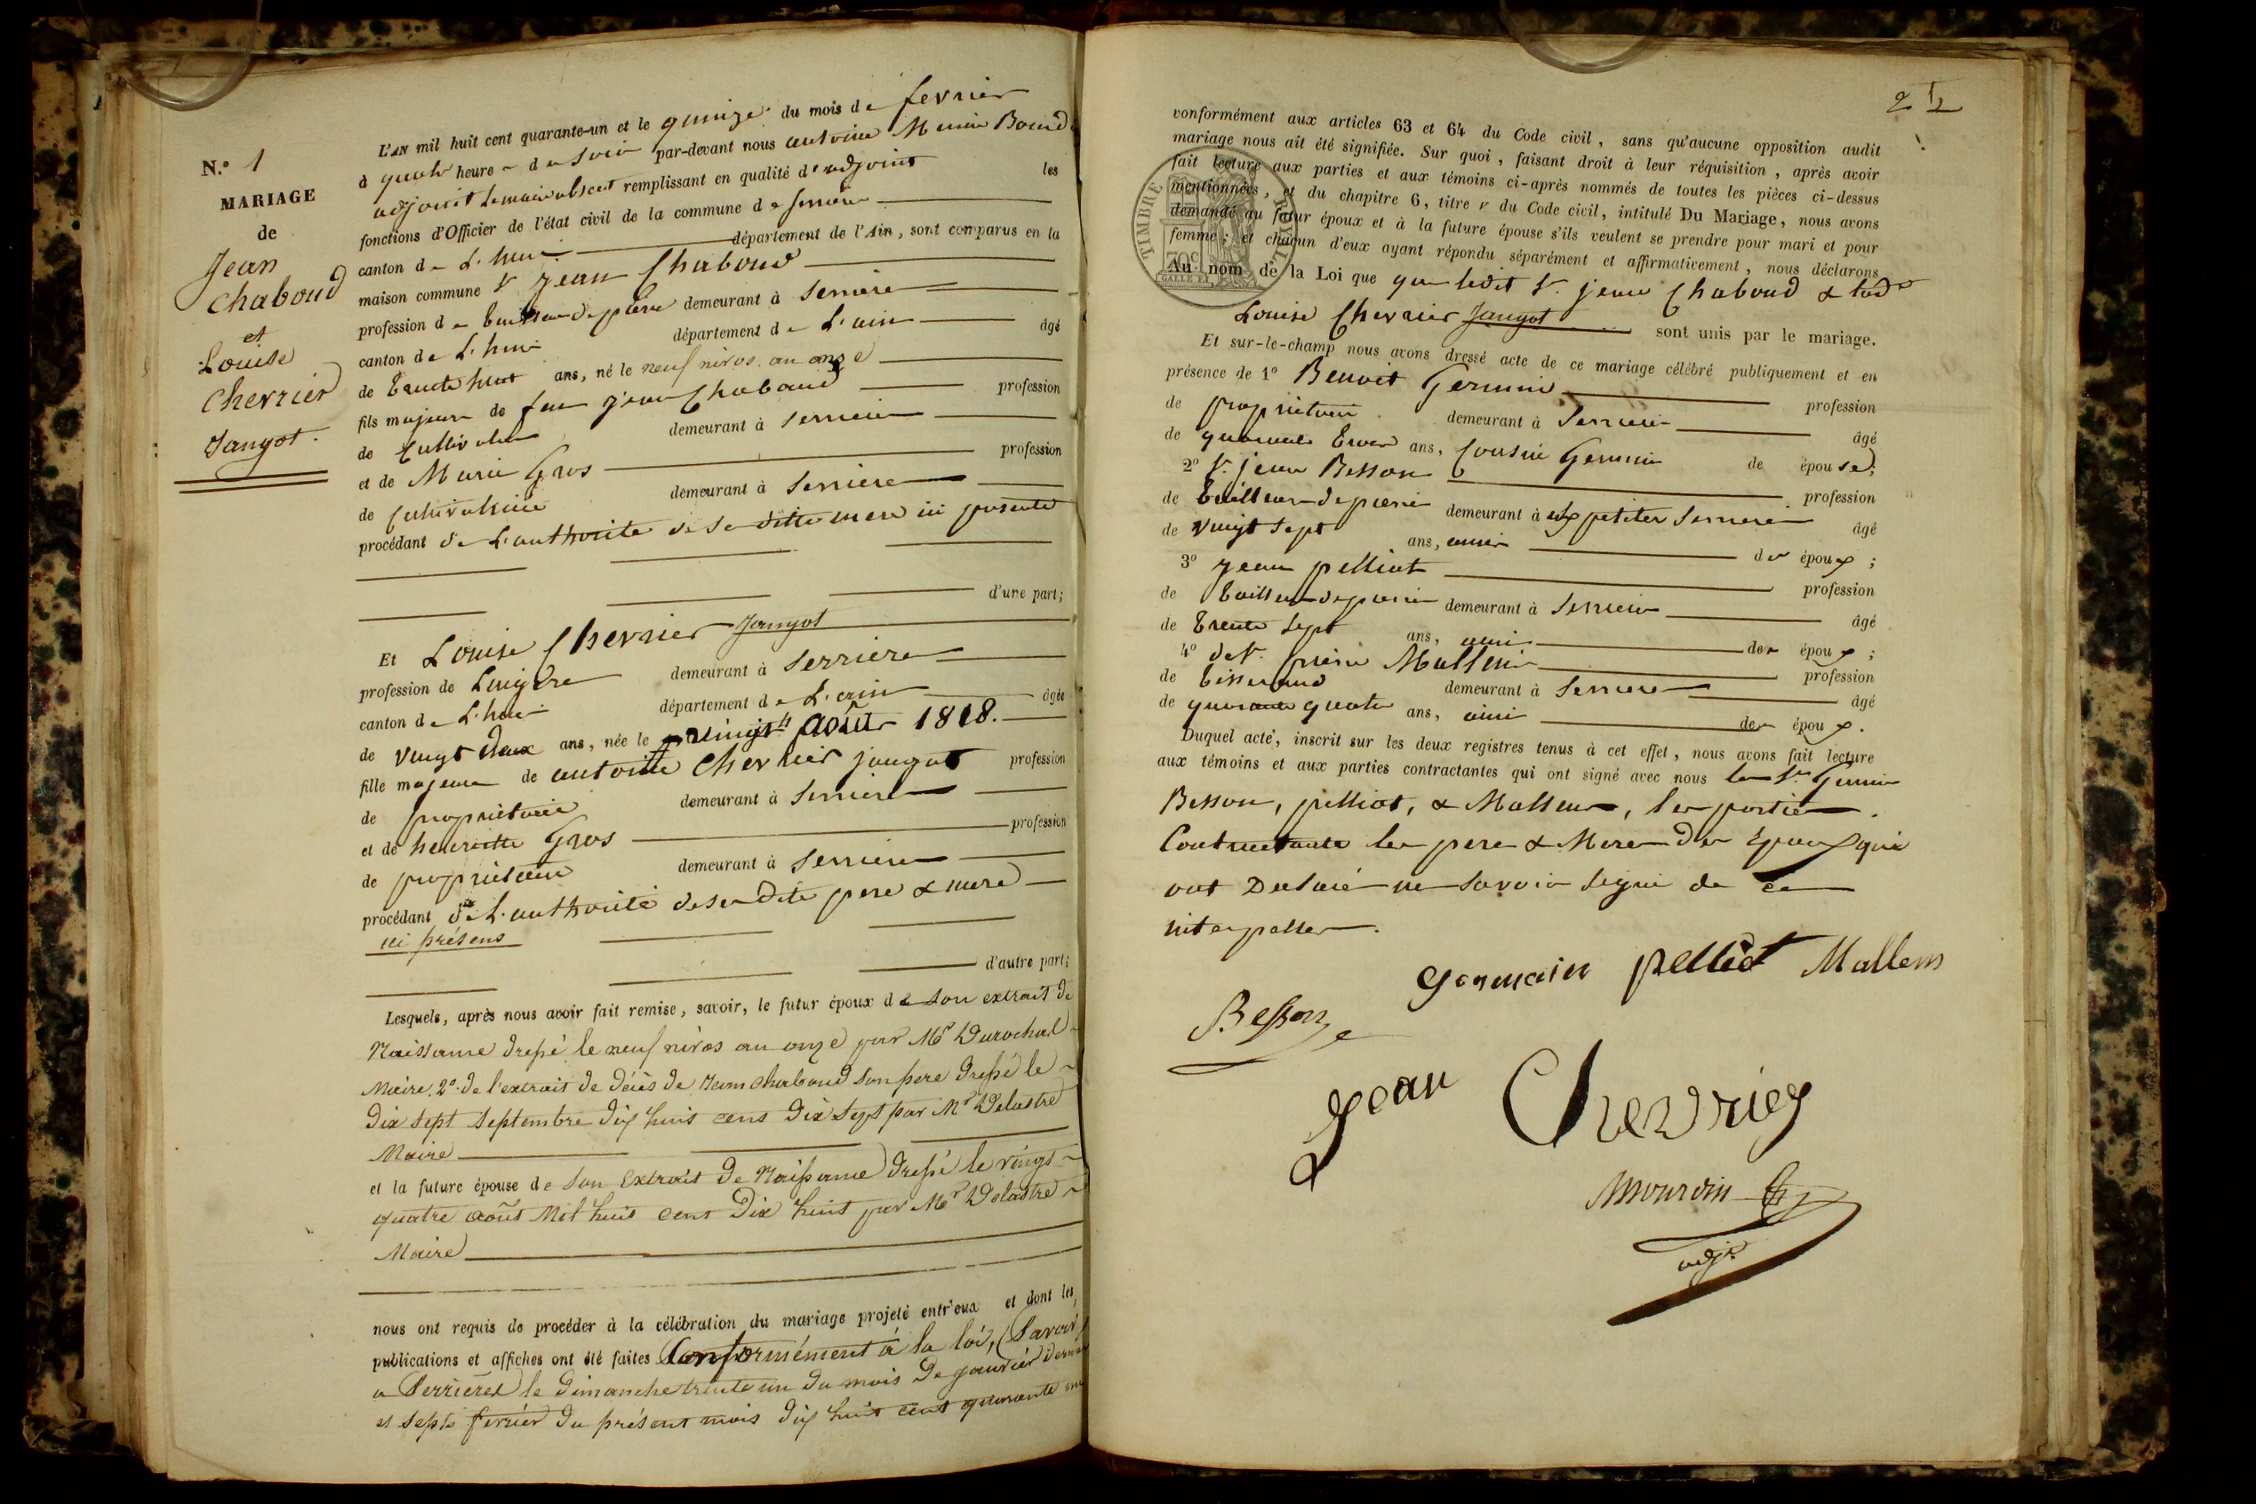 N.° 1
MARIAGE
de
Jean
Chaboud
et
Louise
Cherrier
Jangot.
L'AN mil huit cent quarante-un et le quinze du mois de fevrier
à quatre heure du soir par-devant nous antoine
adjoint le maire absent remplissant en qualité d'adjoint les
fonctions d'Officier de l'état civil de la commune de Serriere
canton de L'huis département de l'Ain, sont comparus en la
maison commune Sr Jean Chaboud
profession de tailleur de pierre demeurant à Serriere
canton de L'huis département de L'ain âgé
de trente huit ans, né le neuf nivos an onze
fils majeur de feu Jean Chaboud profession
de Cultivateur demeurant à Serriere
et de Marie Gros profession
de Cultivatrice demeurant à Serriere
procédant de L'authorité de sa ditte mere ici presente
d'une part;
Et Louise Chevrier Jangot
profession de Lingère demeurant à Serriere
canton de L'huis département de L'ain âgée
de vingt deux ans, née le vingt 4 août 1818.
fille majeure de antoine Chevrier jangot profession
de propriétaire demeurant à Serriere
et de henriette Gros profession
de propriétaire demeurant à Serriere
procédant de L'authorité de ses dits pere & mere
ici présens
d'autre part;
Lesquels, après nous avoir fait remise, savoir, le futur époux de son extrait de
Naissance dressé le neuf nivos an onze par Mr Durochat
Maire, 2° de l'extrait de décès de Jean Chaboud son pere dressé le
Dix sept Septembre dix huit cens dix sept par Mr Delastre
Maire
et la future épouse de son Extrait de Naissance dressé le vingt
quatre août Mil huit cent Dix huit par Mr Delastre
Maire
nous ont requis de procéder à la célébration du mariage projeté entr'eux et dont les
publications et affiches ont été faites Conformément à la loi, (Savoir)
a Serrières le dimanche trente un du mois De janvier dernier
et sept fevrier du présent mois dix huit cent quarante un
conformément aux articles 63 et 64 du Code civil, sans qu'aucune opposition audit
mariage nous ait été signifiée. Sur quoi, faisant droit à leur réquisition, après avoir
fait lecture aux parties et aux témoins ci-après nommés de toutes les pièces ci-dessus
mentionnées, et du chapitre 6, titre v du Code civil, intitulé Du Mariage, nous avons
demandé au futur époux et à la future épouse s'ils veulent se prendre pour mari et pour
femme; et chacun d'eux ayant répondu séparément et affirmativement, nous déclarons
Au nom de la Loi que que ledit Sr jean Chaboud & lade
TIMBRE ROYAL
Louise Chevrier Jangot sont unis par le mariage.
Et sur-le-champ nous avons dressé acte de ce mariage célébré publiquement et en
présence de 1° Benoit Germain profession
de propriétaire demeurant à Serriere âgé
de quarante trois ans, Cousin Germain de épouse;
2° Sr jean Besson profession
de tailleur de pierre demeurant à petites Serriere âgé
de vingt sept ans, amis des époux;
3° Jean pelliot profession
de tailleur de pierre demeurant à Serriere âgé
de trente sept ans, ami des époux;
4° et Sr pierre Mallein profession
de tisserand demeurant à Serriere âgé
de quarante quatre ans, ami des époux.
Duquel acte, inscrit sur les deux registres tenus à cet effet, nous avons fait lecture
aux témoins et aux parties contractantes qui ont signé avec nous les Srs Germain
Besson, pelliot, & Mallein, les parties
Contractante les pere & Mere des Epoux qui
ont Declaré ne savoir signé de ce
interpeller.
Germain pelliot Mallens
Besson
Jean Chevrier
Mourdin
adjt